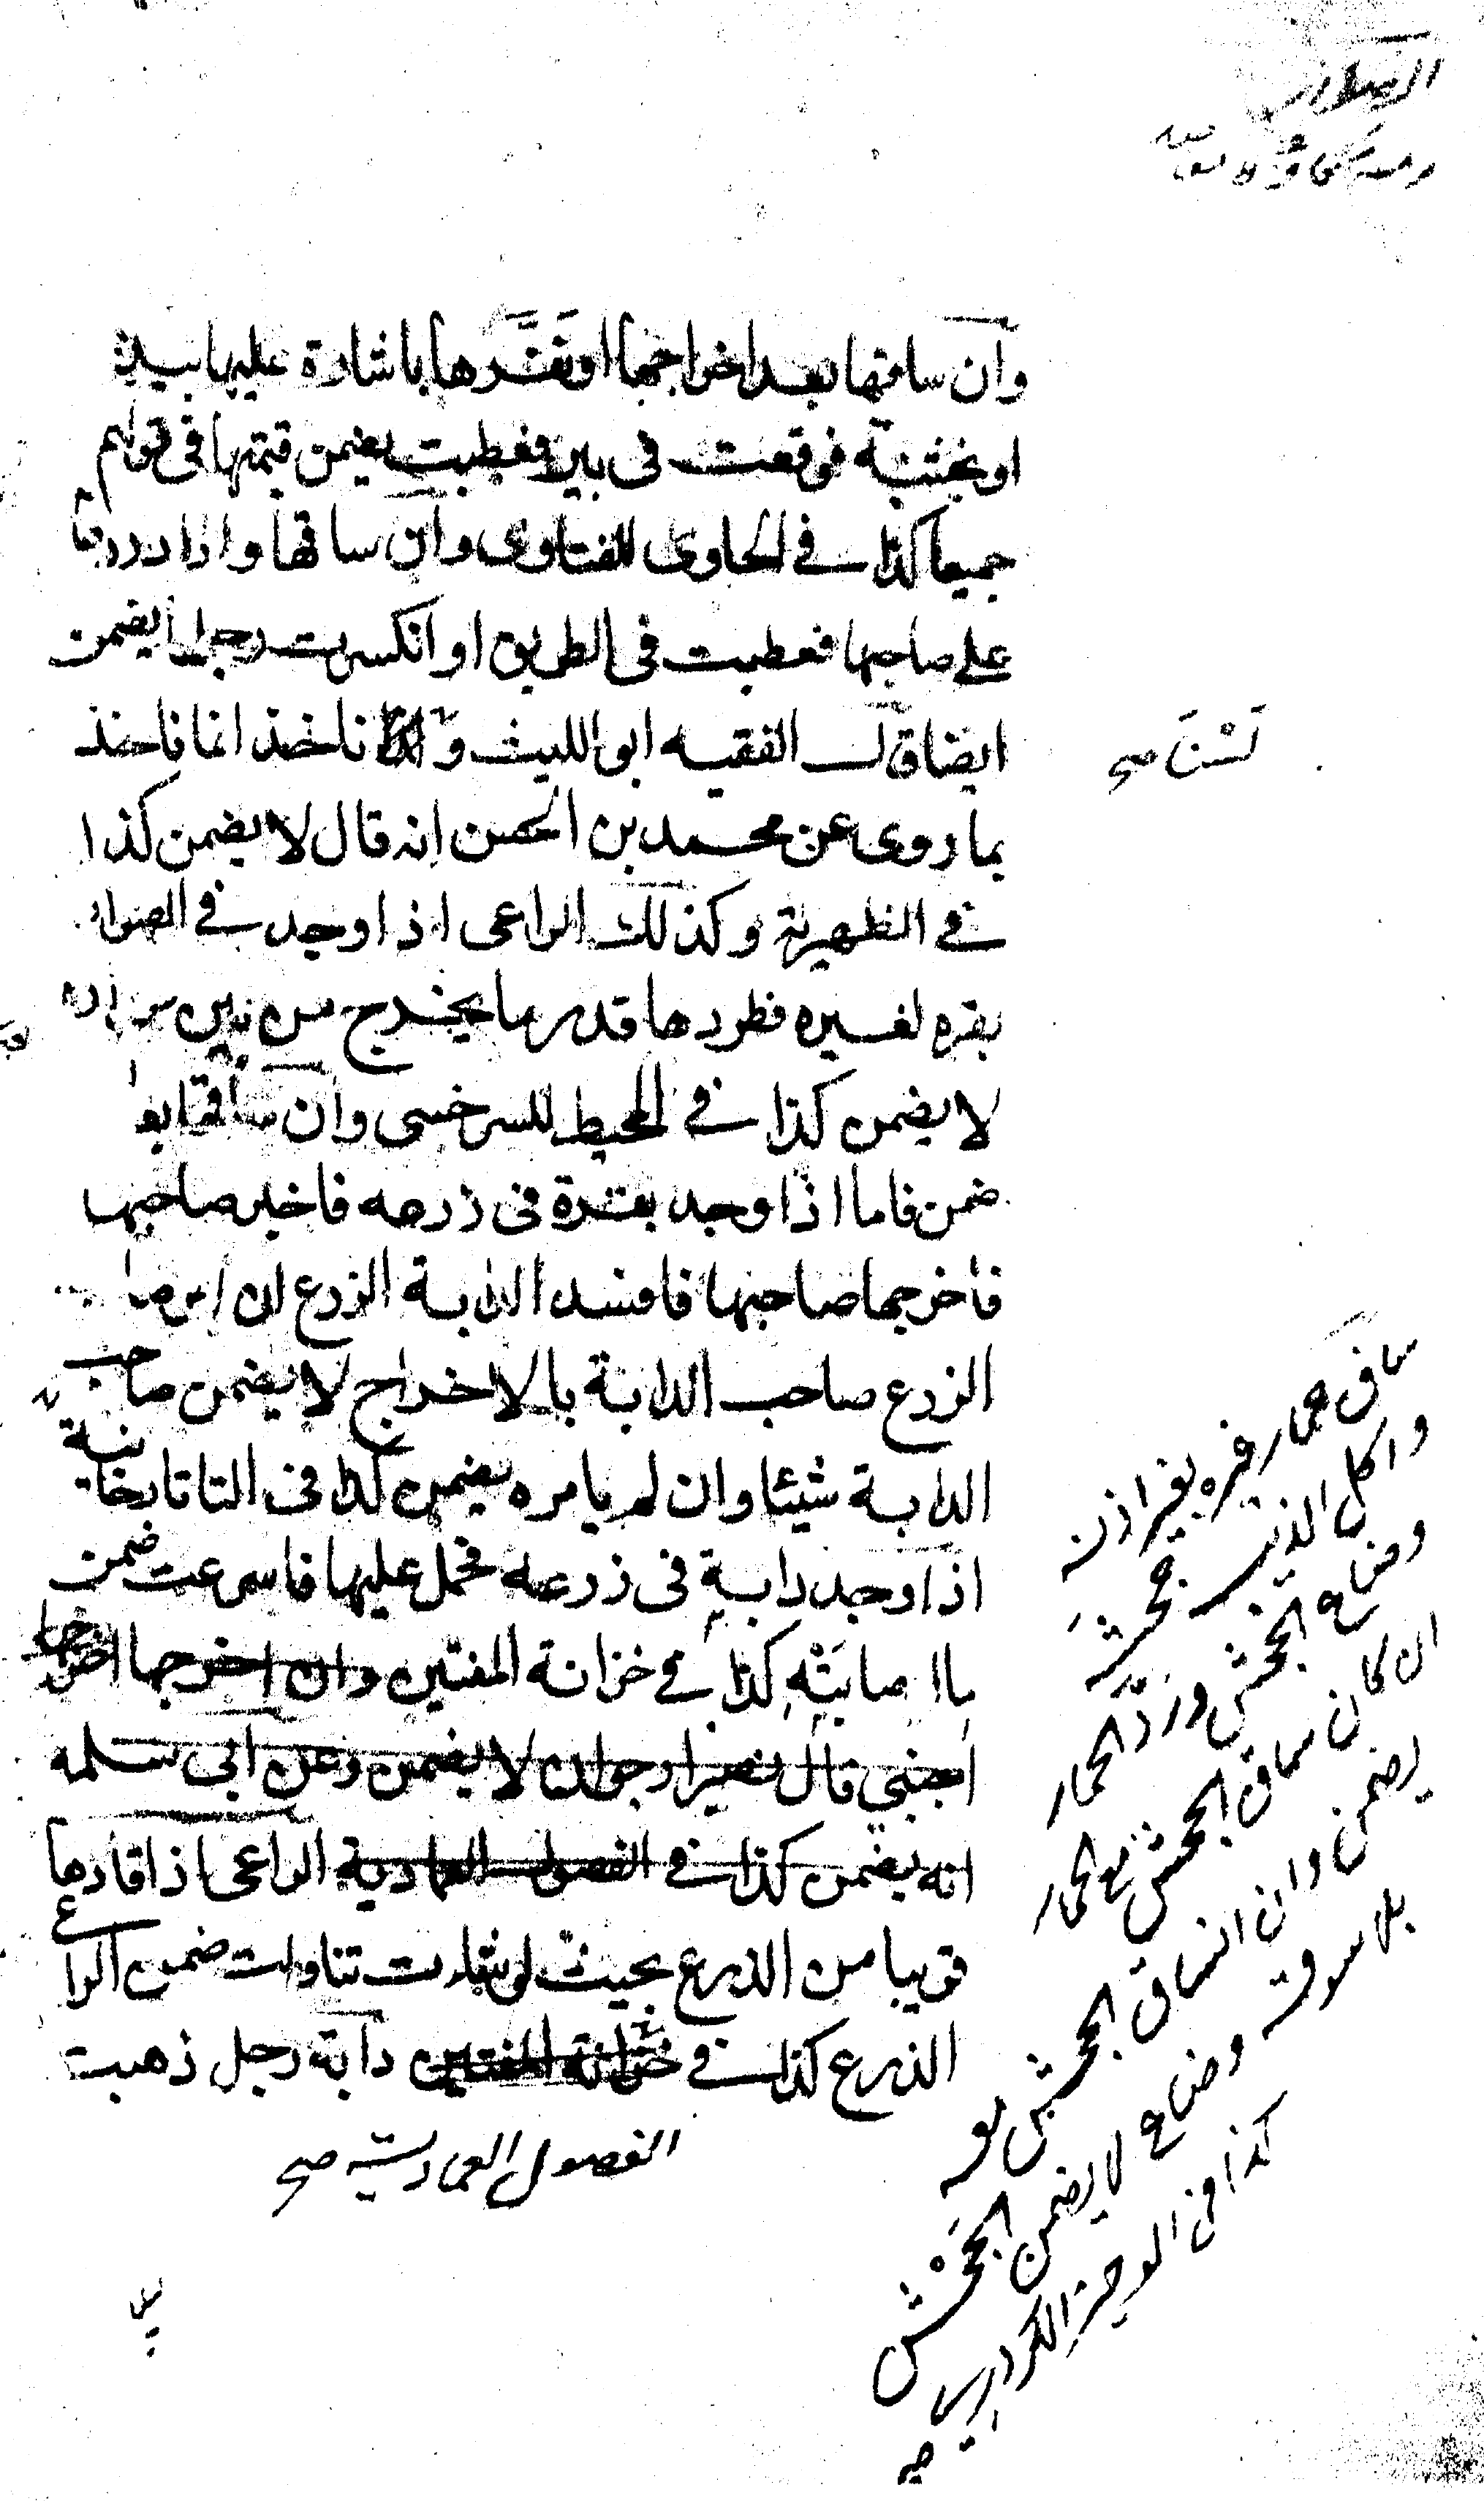 وان ساقها بعد اخراجها او نفرها باشارة عليها بيده
او بخشبة فوقعت فى بير فعطبت يضمن قيمتها فى قولهم
جميعا كذا فى الحاوى للفتاوى وان ساقها واراد ردها
على صاحبها فعطبت فى الطريق او انكسرت رجلها يضمن
ايضا قال الفقيه ابو الليث و ناخذ انما ناخذ
لسنا صح
بما روى عن محمد بن الحسن انه قال لا يضمن كذا
فى الظهيرية وكذلك الراعى اذا وجد فى
بقره لغيره فطردها قدر ما يخرج من بين
لا يضمن كذا فى المحيط للسرخسى وان ساقها
ضمن فاما اذا وجد بقرة فى زرعه فاخبر صاحبها
فاخرجها صاحبها فافسد الدابة الزرع ان امر
الزرع صاحب الدابة بالاخراج لا يضمن صاحب
الدابة شيئا وان لم يامره يضمن كذا فى التاتارخانية
اذا وجد دابة فى زرعه فحمل عليها فاسرعت ضمن
ما اصابته كذا فى خزانة المفتين وان اخرجها
اجنبي قال نصير ارجو ان لا يضمن وعن ابى سلمه
انه يضمن كذا فى الفصول العمادية الراعى اذا قادها
قريبا من الزرع بحيث لو شاءت تناولت ضمن الراعى
الزرع كذا فى خزانة المفتين دابة رجل ذهبت
الفصول العمادية صح
ساق حمار غيره بغير اذنه
واكل الذئب جحشه
وضاع الجحش ورد الحمار
ان كان ساق الجحش مع الحمار
يضمن وان انساق الجحش
بلا سوقه وضاع لا يضمن الجحش
كذا فى الوجيز للكردرى صح